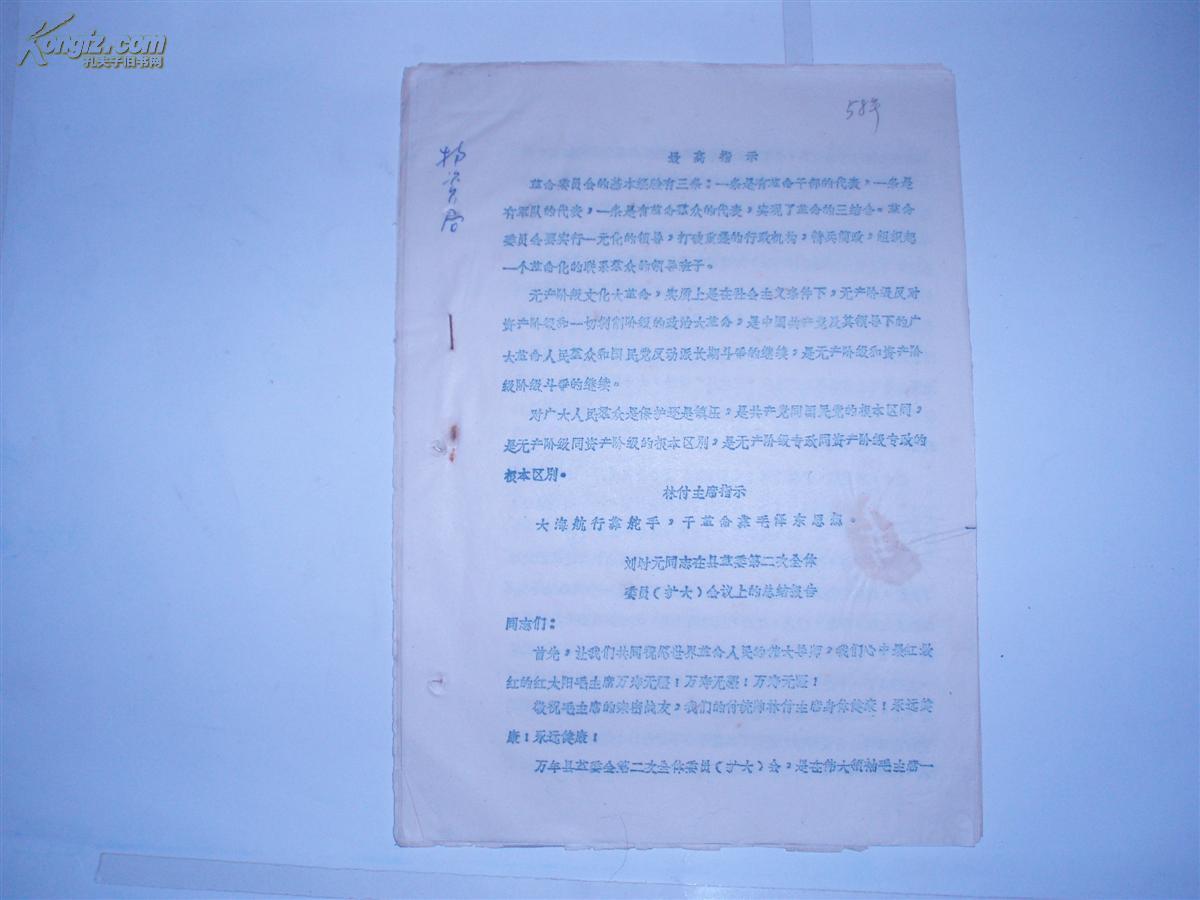 Kongfz.com
孔夫子旧书网
58年
物资局
最高指示
革命委员会的基本经验有三条：一条是有革命干部的代表，一条是
有军队的代表，一条是有革命群众的代表，实现了革命的三结合。革命
委员会要实行一元化的领导，打破重叠的行政机构，精兵简政，组织起
一个革命化的联系群众的领导班子。
无产阶级文化大革命，实质上是在社会主义条件下，无产阶级反对
资产阶级和一切剥削阶级的政治大革命，是中国共产党及其领导下的广
大革命人民群众和国民党反动派长期斗争的继续，是无产阶级和资产阶
级阶级斗争的继续。
对广大人民群众是保护还是镇压，是共产党同国民党的根本区别，
是无产阶级同资产阶级的根本区别，是无产阶级专政同资产阶级专政的
根本区别。
林付主席指示
大海航行靠舵手，干革命靠毛泽东思想。
刘时元同志在县革委第二次全体
委员（扩大）会议上的总结报告
同志们：
首先，让我们共同祝愿世界革命人民的伟大导师，我们心中最红最
红的红太阳毛主席万寿无疆！万寿无疆！万寿无疆！
敬祝毛主席的亲密战友，我们的付统帅林付主席身体健康！永远健
康！永远健康！
万年县革委会第二次全体委员（扩大）会，是在伟大领袖毛主席一